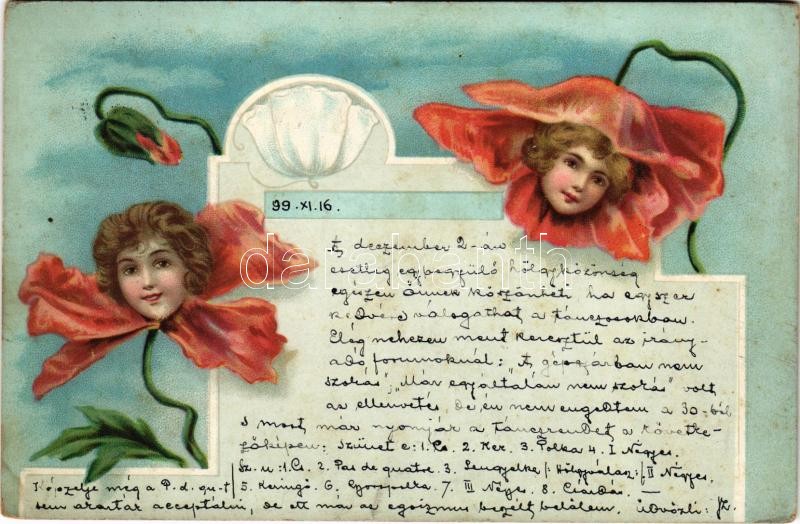 99.XI.16.
A deczember 2-án
esetleg egybegyülő hölgyközönség
egészen Önnek köszönheti ha egyszer
kedvére válogathat a tánczosokban.
Elég nehezen ment keresztül az irány-
adó forumoknál: "A gépgyárban nem
szokás", "Már egyáltalán nem szokás" volt
az ellenvetés, de én nem engedtem a 30-ból
S most már nyomják a tánczrendet a követke-
zőképen: Szünet e: 1. Cs. 2. Ker. 3. Polka 4. I Négyes.
Sz. u: 1. Cs. 2. Pas de quatre. 3. Lengyelke /: Hölgyválasz :/ II Négyes.
5. Keringő. 6. Gyorspolka. 7. III Négyes. 8. Csárdás. —
Képzelje még a P. d. qu-t
sem akarták acceptálni, de itt már az egoizmus beszélt belőlem. Üdvözli:
darabanth